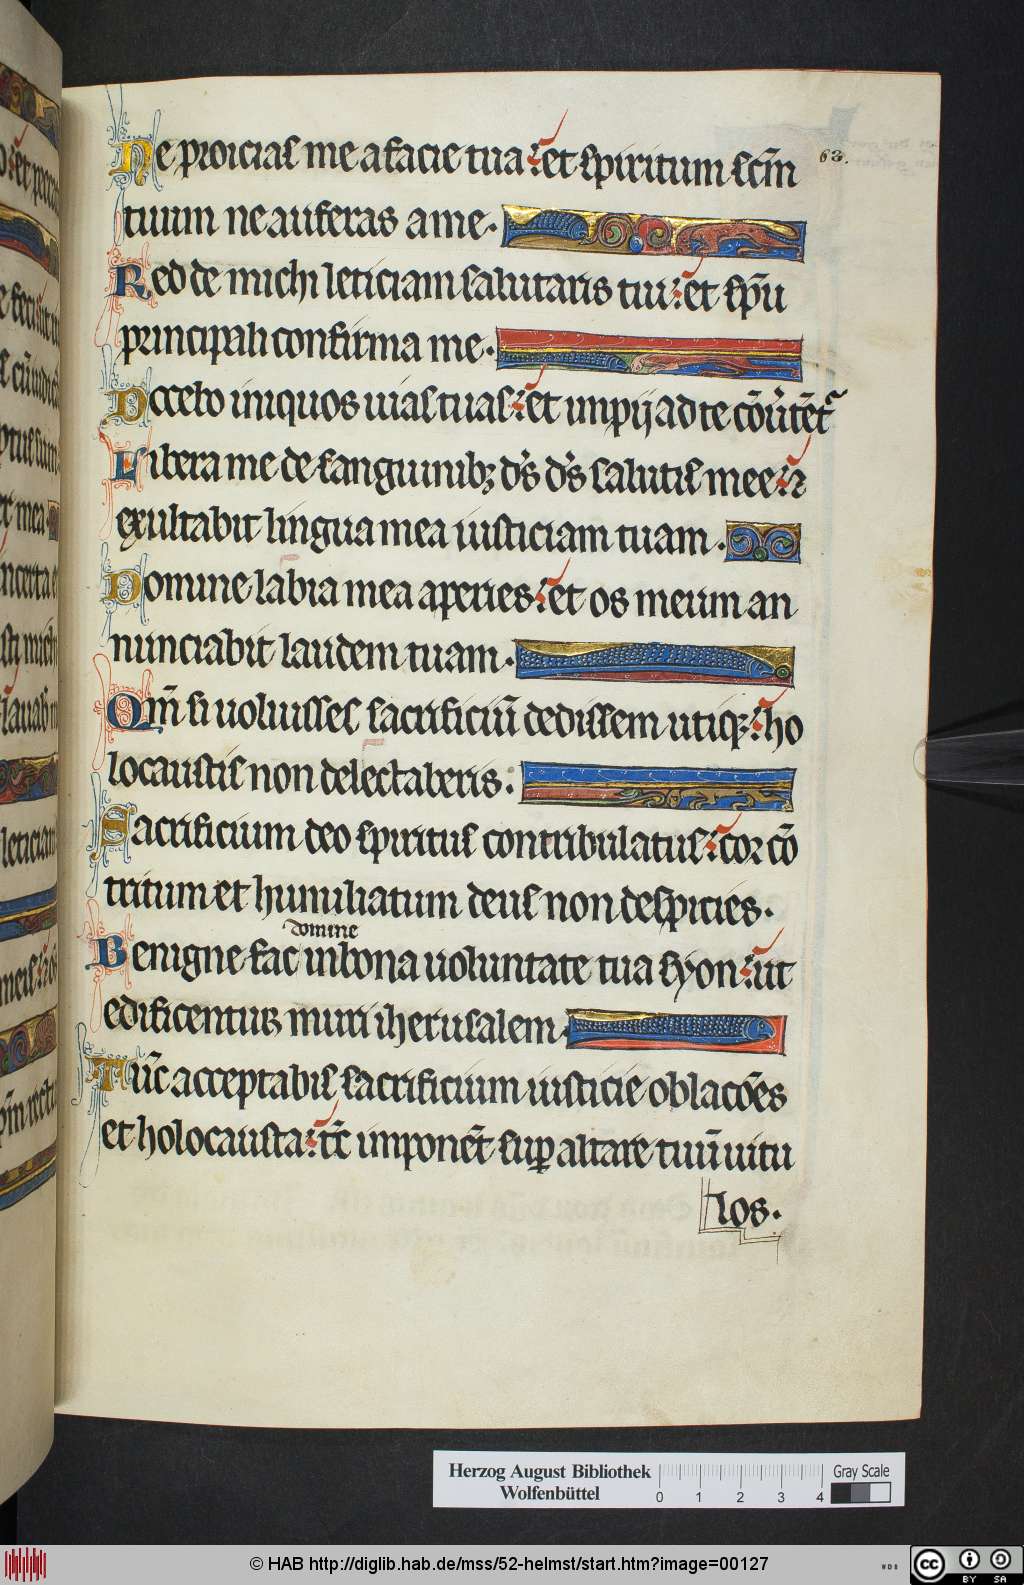 Ne proicias me a facie tua: et spiritum scm̄
63.
tuum ne auferas a me.
Redde michi leticiam salutaris tui: et sp̄u
principali confirma me.
Docebo iniquos uias tuas: et impij ad te cōu̾tēt᷑
Libera me de sanguinibꝫ ds̄ ds̄ salutis mee: ⁊
exultabit lingua mea iusticiam tuam.
Domine labia mea aperies: et os meum an
nunciabit laudem tuam.
Qm̄ si uoluisses sacrificiū dedissem utiqꝫ: ho
locaustis non delectaberis:
Sacrificium deo spiritus contribulatus: cor cō
tritum et humiliatum deus non despicies.
domine
Benigne fac in bona uoluntate tua syon: ut
edificentur muri iherusalem.
Tūc acceptabis sacrificium iusticie oblacōes
et holocausta: tc̄ imponēt suꝑ altare tuū uitu
los.
Herzog August Bibliothek
Wolfenbüttel
0 1 2 3 4
Gray Scale
© HAB http://diglib.hab.de/mss/52-helmst/start.htm?image=00127
WDB
cc BY SA